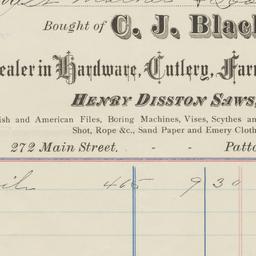 Bought of C. J. Blac
ealer in Hardware, Cutlery, Far
Henry Disston Saws,
ish and American Files, Boring Machines, Vises, Scythes an
Shot, Rope &c., Sand Paper and Emery Cloth
272 Main Street, - - Patto
ils 465 9 30